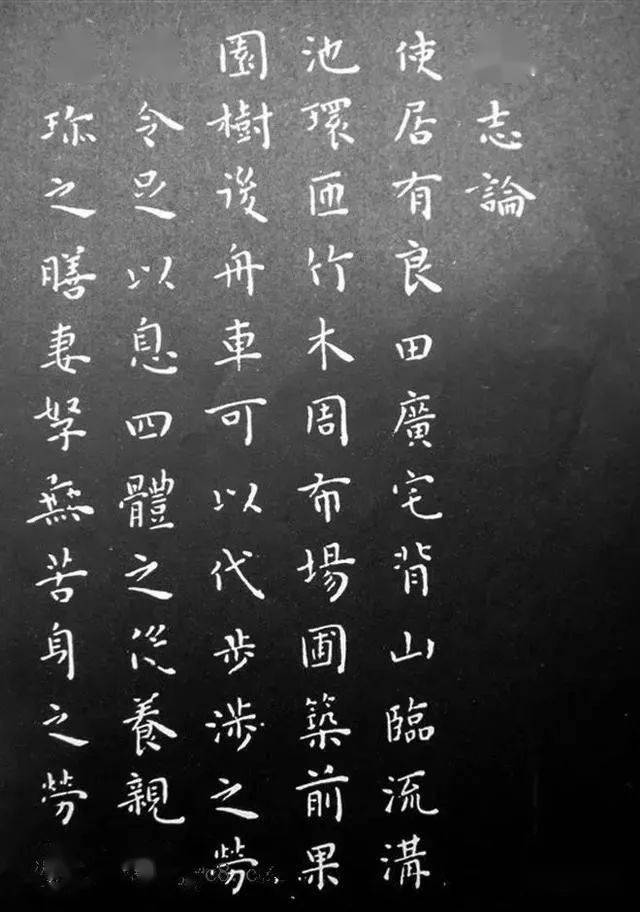 志論
使居有良田廣宅背山臨流溝
池環匝竹木周布場圃築前果
園樹後舟車可以代步涉之勞
令足以息四體之役養親
珎之膳妻孥無苦身之勞